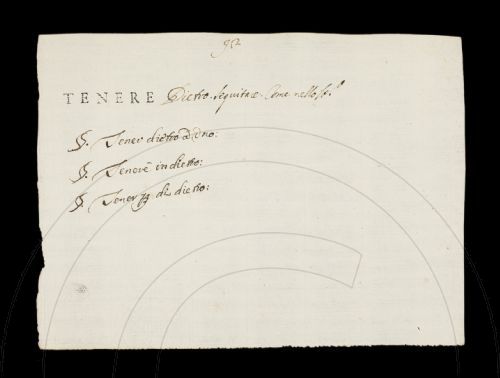 92
TENERE Dietro. sequitar. Come nello
§. Tener dietro à uno:
§. Tenere in dietro:
§. Tener di dietro: